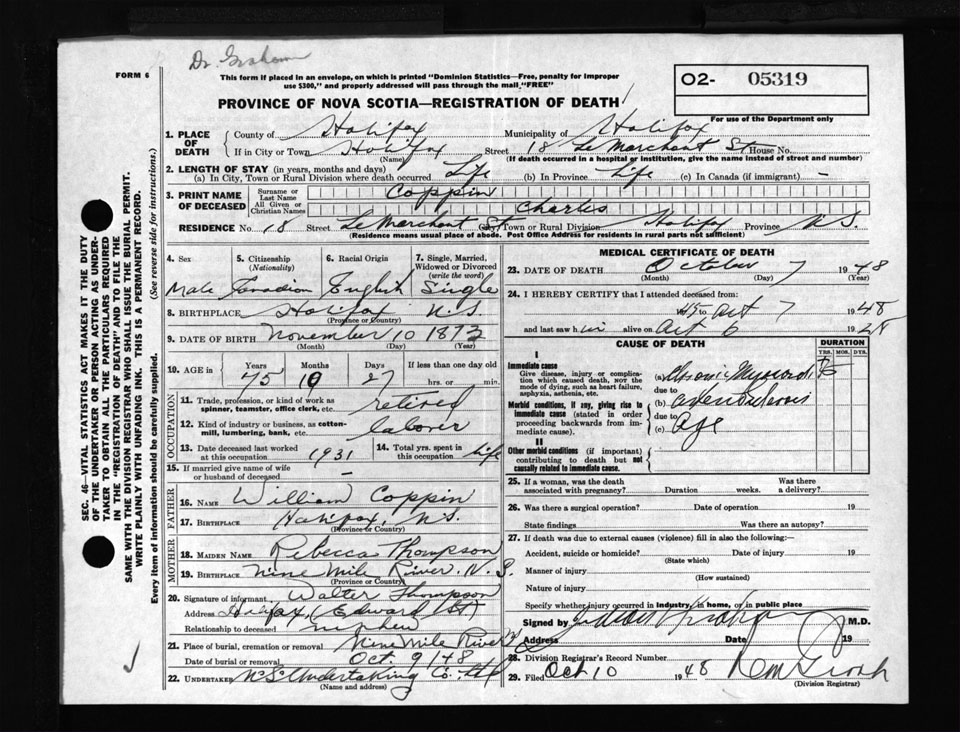 Dr. Graham
FORM 6
This form if placed in an envelope, on which is printed "Dominion Statistics—Free, penalty for improper
use $300," and properly addressed will pass through the mail "FREE"
02- 05319
For use of the Department only
PROVINCE OF NOVA SCOTIA—REGISTRATION OF DEATH
1. PLACE OF DEATH
County of Halifax Municipality of Halifax
If in City or Town Halifax Street 18 LeMarchant St House No.
(Name) (If death occurred in a hospital or institution, give the name instead of street and number)
2. LENGTH OF STAY (in years, months and days)
(a) In City, Town or Rural Division where death occurred Life (b) In Province Life (c) In Canada (if immigrant) -
3. PRINT NAME OF DECEASED
Surname or Last Name Coppin
All Given or Christian Names Charles
RESIDENCE No. 18 Street LeMarchant St City, Town or Rural Division Halifax Province N.S.
(Residence means usual place of abode. Post Office Address for residents in rural parts not sufficient)
4. Sex
Male
5. Citizenship (Nationality)
Canadian
6. Racial Origin
English
7. Single, Married, Widowed or Divorced (write the word)
Single
8. BIRTHPLACE Halifax N.S.
(Province or Country)
9. DATE OF BIRTH November 10 1873
(Month) (Day) (Year)
10. AGE in
Years Months Days If less than one day old
75 10 27 hrs. or min.
OCCUPATION
11. Trade, profession, or kind of work as spinner, teamster, office clerk, etc. retired
12. Kind of industry or business, as cotton-mill, lumbering, bank, etc. laborer
13. Date deceased last worked at this occupation 1931
14. Total yrs. spent in this occupation life
15. If married give name of wife or husband of deceased -
FATHER
16. NAME William Coppin
17. BIRTHPLACE Halifax, N.S.
(Province or Country)
MOTHER
18. MAIDEN NAME Rebecca Thompson
19. BIRTHPLACE Nine Mile River. N.S.
(Province or Country)
20. Signature of informant Walter Thompson
Address Halifax, (Edward St)
Relationship to deceased nephew
21. Place of burial, cremation or removal Nine Mile River
Date of burial or removal Oct. 9/48
22. UNDERTAKER N.S. Undertaking Co.
(Name and address)
MEDICAL CERTIFICATE OF DEATH
23. DATE OF DEATH October 7 1948
(Month) (Day) (Year)
24. I HEREBY CERTIFY that I attended deceased from:
to Oct 7 1948
and last saw him alive on Oct 6 1948
CAUSE OF DEATH DURATION
YRS. MOS. DYS.
I
Immediate cause
Give disease, injury or complication which caused death, not the mode of dying, such as heart failure, asphyxia, asthenia, etc.
(a) Chronic
due to
Morbid conditions, if any, giving rise to immediate cause (stated in order proceeding backwards from immediate cause).
(b)
due to
(c) Age
II
Other morbid conditions (if important) contributing to death but not causally related to immediate cause.
25. If a woman, was the death associated with pregnancy? Duration weeks. Was there a delivery?
26. Was there a surgical operation? Date of operation 19
State findings Was there an autopsy?
27. If death was due to external causes (violence) fill in also the following:—
Accident, suicide or homicide? Date of injury 19
(State which)
Manner of injury
(How sustained)
Nature of injury
Specify whether injury occurred in industry, home, or in public place
Signed by M.D.
Address Date 19
28. Division Registrar's Record Number
29. Filed Oct 10 1948
(Division Registrar)
SEC. 46—VITAL STATISTICS ACT MAKES IT THE DUTY
OF THE UNDERTAKER OR PERSON ACTING AS UNDER-
TAKER TO OBTAIN ALL THE PARTICULARS REQUIRED
IN THE "REGISTRATION OF DEATH" AND TO FILE THE
SAME WITH THE DIVISION REGISTRAR WHO SHALL ISSUE THE BURIAL PERMIT.
WRITE PLAINLY WITH UNFADING INK. THIS IS A PERMANENT RECORD.
Every item of information should be carefully supplied. (See reverse side for instructions.)